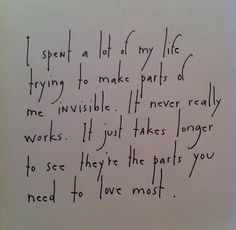 I spent a lot of my life
trying to make parts of
me invisible. It never really
works. It just takes longer
to see they're the parts you
need to love most.